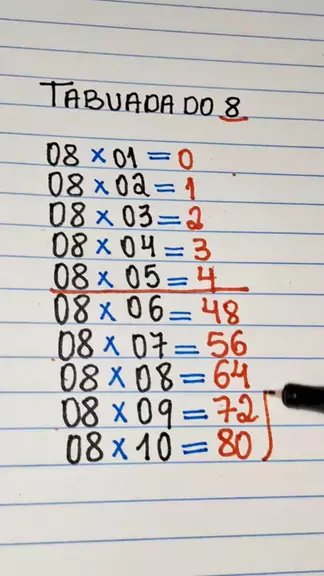 TABUADA DO 8
08 × 01 = 0
08 × 02 = 1
08 × 03 = 2
08 × 04 = 3
08 × 05 = 4
08 × 06 = 48
08 × 07 = 56
08 × 08 = 64
08 × 09 = 72
08 × 10 = 80